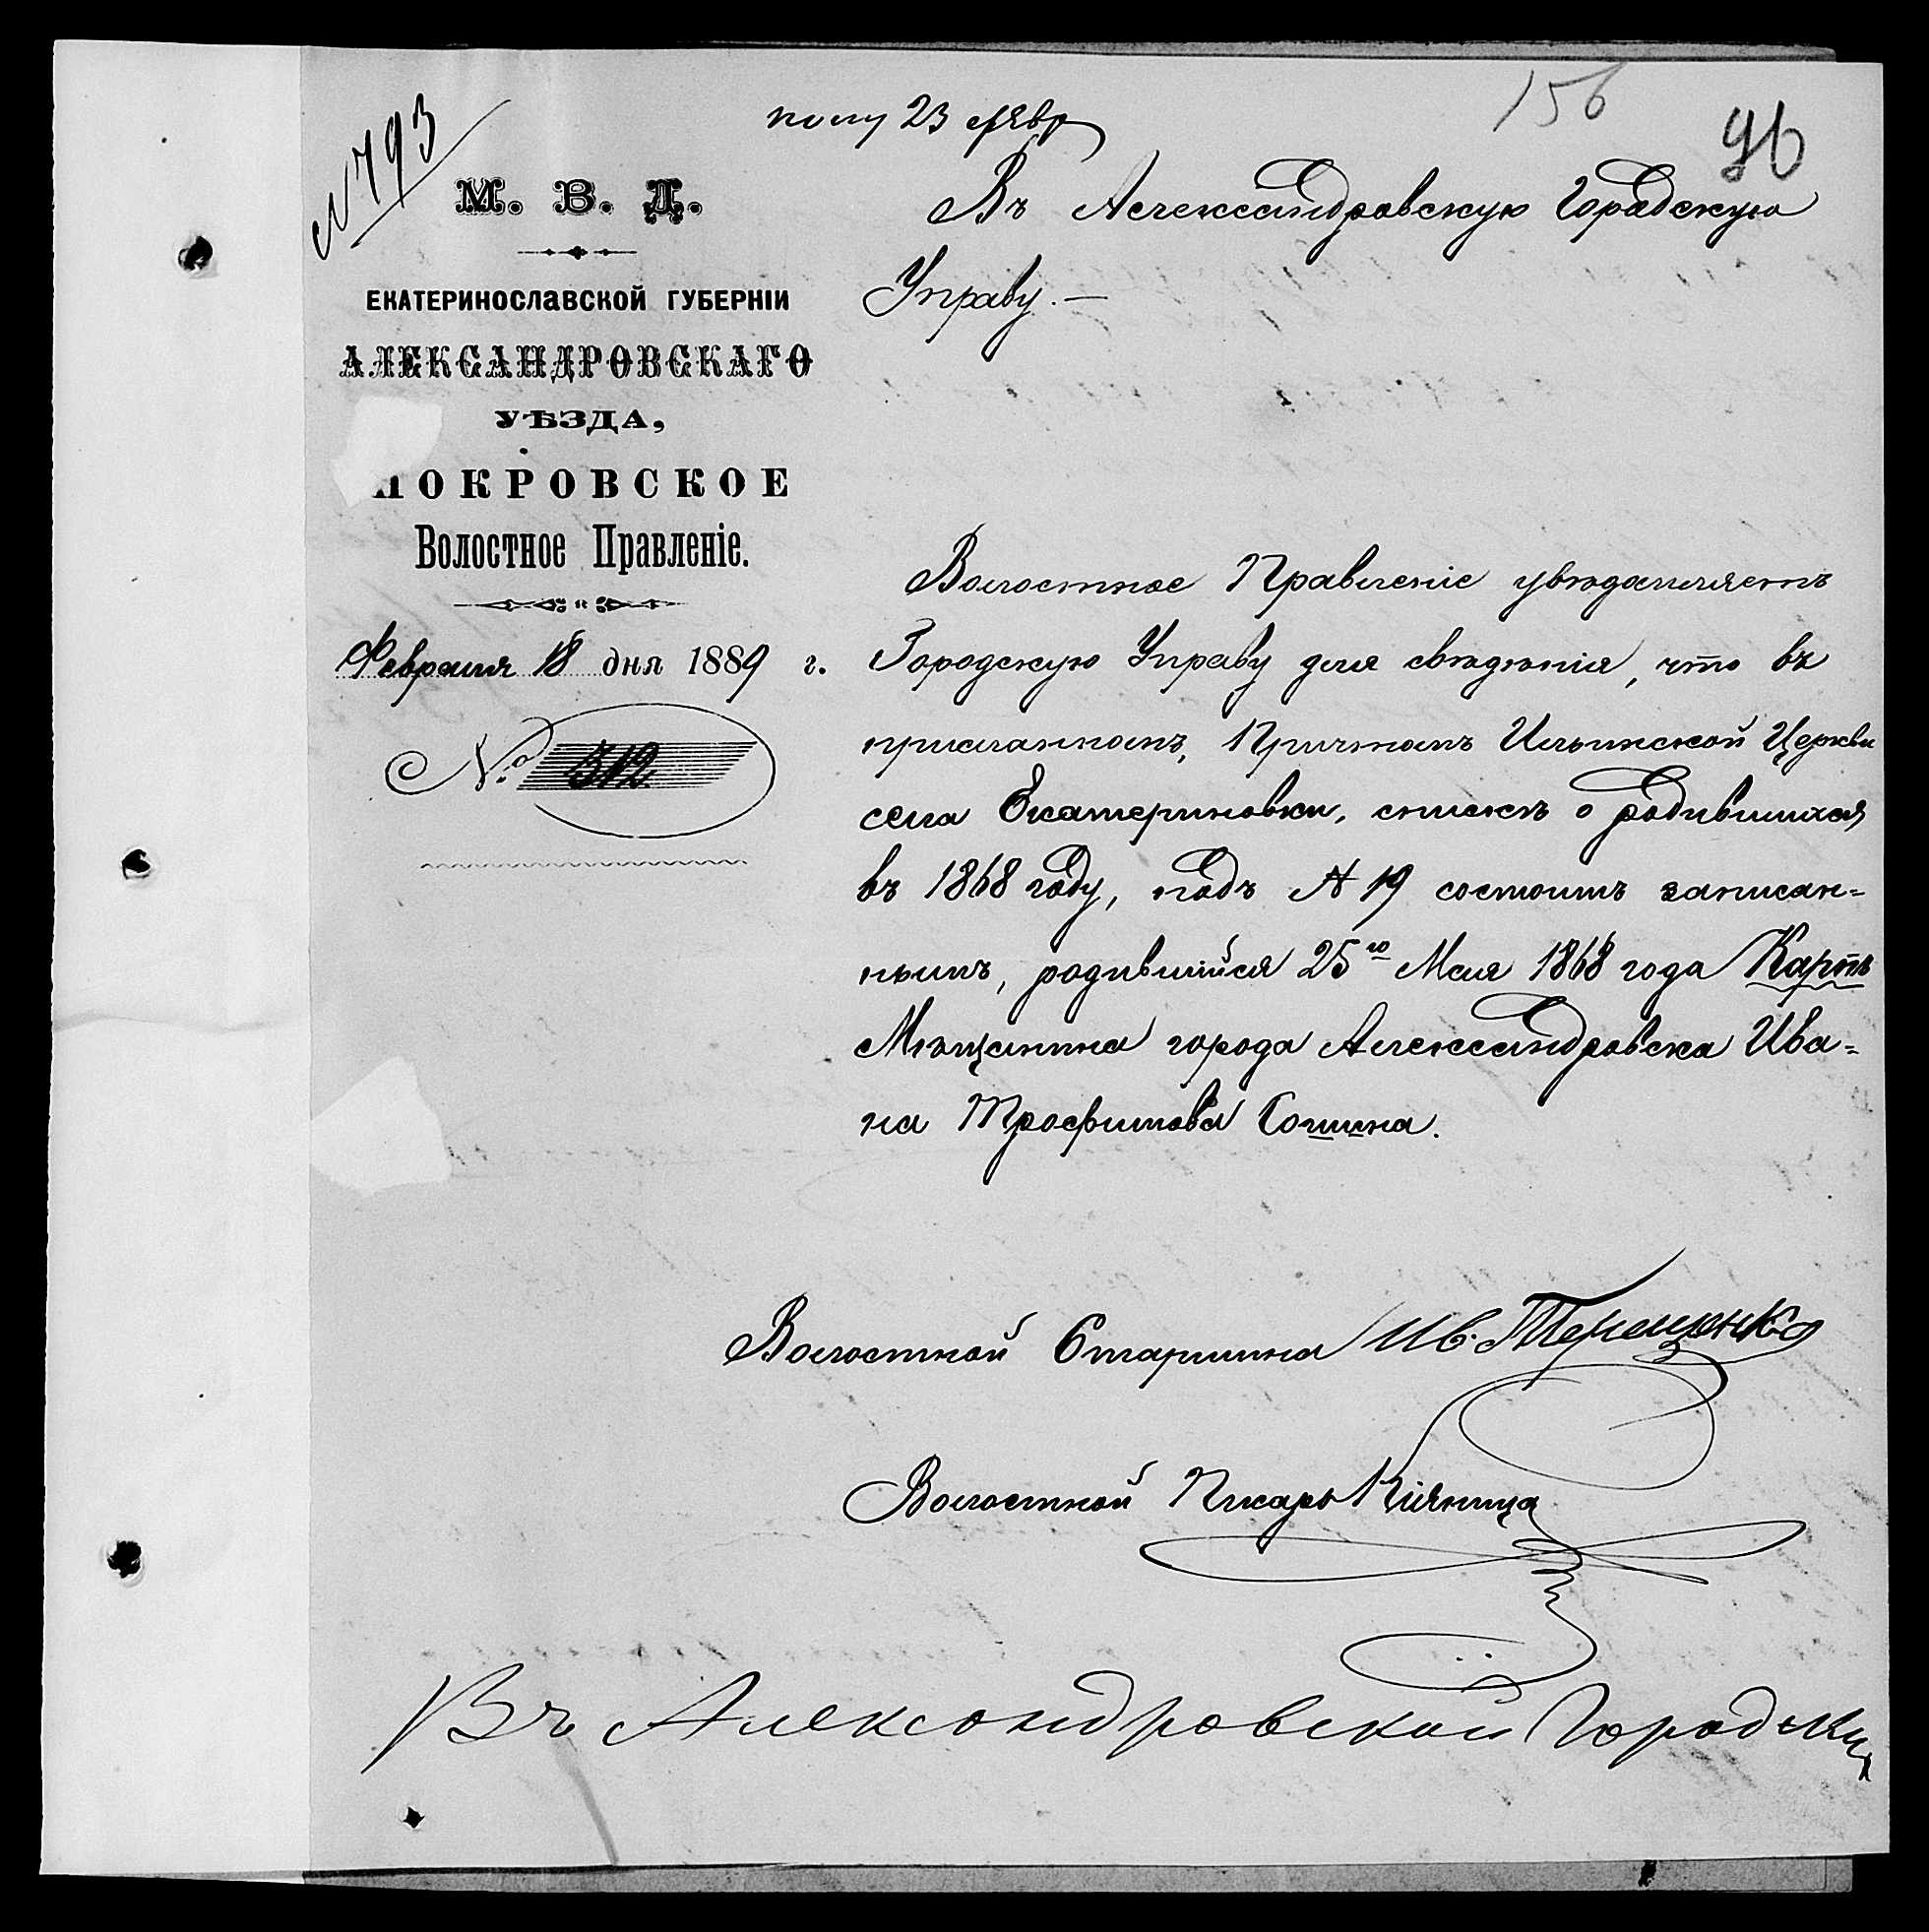 156
96
№ 793
полу 23 февр
М. В. Д.
ЕКАТЕРИНОСЛАВСКОЙ ГУБЕРНІИ
АЛЕКСАНДРОВСКАГО
УѢЗДА,
ПОКРОВСКОЕ
Волостное Правленіе.
Февраля 18 дня 1889 г.
№ 312
Въ Александровскую Городскую
Управу. —
Волостное Правленіе увѣдомляетъ
Городскую Управу для свѣдѣнія, что въ
присланномъ, Причтомъ Ильинской Церкви
села Екатериновки, спискѣ о родившихся
въ 1868 году, подъ № 19 состоитъ записан=
нымъ, родившійся 25го Мая 1868 года Карпъ
Мѣщанина города Александровска Ива=
на Трофимова Сошина.
Волостной Старшина Ив. Терещенко
Волостной Писарь Кіяница
Въ Александровской Городску